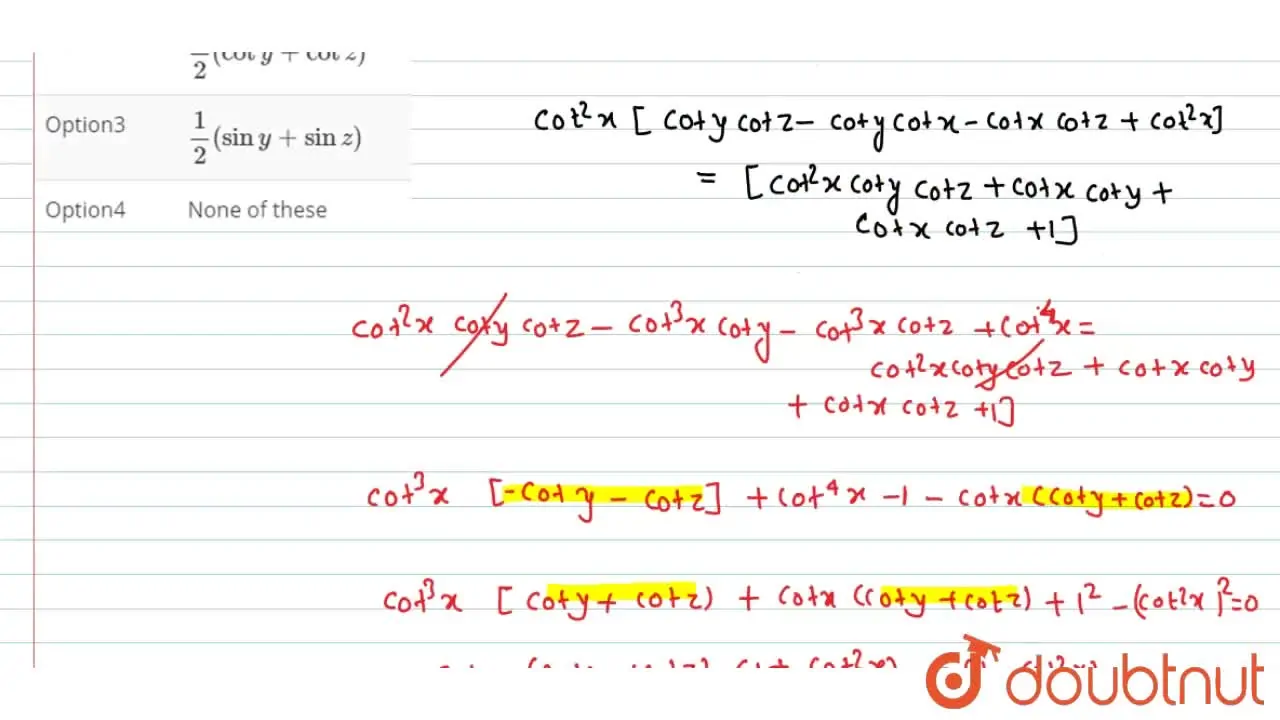 1/2 (cot y + cot z)
Option3 1/2 (sin y + sin z)
Option4 None of these
cot²x [ coty cotz - coty cotx - cotx cotz + cot²x]
= [cot²x coty cotz + cotx coty +
cotx cotz +1]
cot²x coty cotz - cot³x coty - cot³x cotz + cot⁴x =
cot²x coty cotz + cotx coty
+ cotx cotz +1]
cot³x [-cot y - cotz] + cot⁴x -1 - cotx (coty + cotz) = 0
cot³x [coty + cotz) + cotx (coty + cotz) + 1² - (cot²x)² = 0
doubtnut